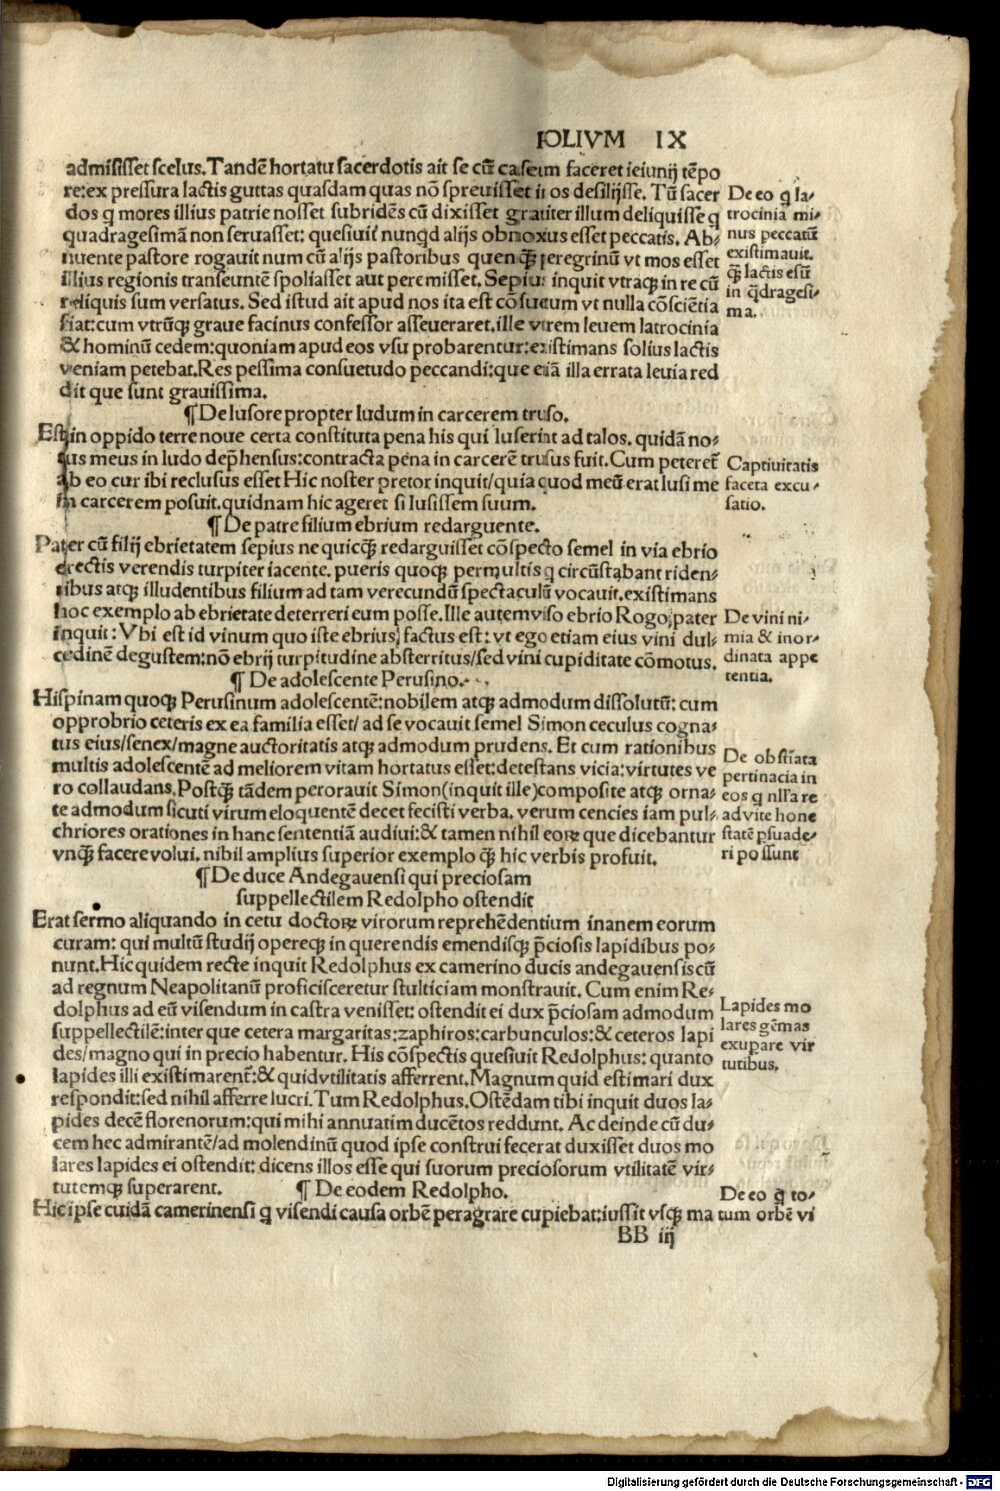 FOLIVM IX
admisisset scelus. Tandē hortatu sacerdotis ait se cū caseum faceret ieiunij tēpo
re: ex pressura lactis guttas quasdam quas nō spreuisset in os desilijsse. Tū sacer
dos q mores illius patrie nosset subridēs cū dixisset grauiter illum deliquisse q
quadragesimā non seruasset: quesiuit nunqd alijs obnoxus esset peccatis. Ab-
nuente pastore rogauit num cū alijs pastoribus quenq̄ꝫ peregrinū vt mos esset
illius regionis transeuntē spoliasset aut peremisset. Sepius inquit vtraqꝫ in re cū
reliquis sum versatus. Sed istud ait apud nos ita est cōsuetum vt nulla cōsciētia
fiat: cum vtrūqꝫ graue facinus confessor asseueraret. ille vt rem leuem latrocinia
& hominū cedem: quoniam apud eos vsu probarentur: existimans solius lactis
veniam petebat. Res pessima consuetudo peccandi: que etiā illa errata leuia red
dit que sunt grauissima.
¶ De lusore propter ludum in carcerem truso.
Est in oppido terre noue certa constituta pena his qui luserint ad talos. quidā no-
tus meus in ludo dep̄hensus: contracta pena in carcerē trusus fuit. Cum peteret̄
ab eo cur ibi reclusus esset Hic noster pretor inquit/ quia quod meū erat lusi me
in carcerem posuit. quidnam hic ageret si lusissem suum.
¶ De patre filium ebrium redarguente.
Pater cū filij ebrietatem sepius ne quicq̄ꝫ redarguisset cōspecto semel in via ebrio
erectis verendis turpiter iacente. pueris quoqꝫ permultis q circūstabant riden-
tibus atqꝫ illudentibus filium ad tam verecundū spectaculū vocauit. existimans
hoc exemplo ab ebrietate deterreri eum posse. Ille autem viso ebrio Rogo pater
inquit: Vbi est id vinum quo iste ebrius factus est: vt ego etiam eius vini dul-
cedinē degustem: nō ebrij turpitudine absterritus/ sed vini cupiditate cōmotus.
¶ De adolescente Perusino.
Hispinam quoqꝫ Perusinum adolescentē: nobilem atqꝫ admodum dissolutū: cum
opprobrio ceteris ex ea familia esset/ ad se vocauit semel Simon ceculus cogna-
tus eius/ senex/ magne auctoritatis atqꝫ admodum prudens. Et cum rationibus
multis adolescentē ad meliorem vitam hortatus esset: detestans vicia: virtutes ve
ro collaudans. Postq̄ꝫ tādem perorauit Simon (inquit ille) composite atqꝫ orna-
te admodum sicuti virum eloquentē decet fecisti verba. verum cencies iam pul-
chriores orationes in hanc sententiā audiui: & tamen nihil eoꝝ que dicebantur
vnq̄ꝫ facere volui. nihil amplius superior exemplo q̄ꝫ hic verbis profuit.
¶ De duce Andegauensi qui preciosam
suppellectilem Redolpho ostendit
Erat sermo aliquando in cetu doctoꝝ virorum reprehēdentium inanem eorum
curam: qui multū studij opereqꝫ in querendis emendisqꝫ p̄ciosis lapidibus po-
nunt. Hic quidem recte inquit Redolphus ex camerino ducis andegauensis cū
ad regnum Neapolitanū proficisceretur stulticiam monstrauit. Cum enim Re-
dolphus ad eū visendum in castra venisset: ostendit ei dux p̄ciosam admodum
suppellectilē: inter que cetera margaritas: zaphiros: carbunculos: & ceteros lapi
des/ magno qui in precio habentur. His cōspectis quesiuit Redolphus: quanto
lapides illi existimarent̄: & quid vtilitatis afferrent. Magnum quid estimari dux
respondit: sed nihil afferre lucri. Tum Redolphus. Ostēdam tibi inquit duos la-
pides decē florenorum: qui mihi annuatim ducētos reddunt. Ac deinde cū du-
cem hec admirantē/ ad molendinū quod ipse construi fecerat duxisset duos mo
lares lapides ei ostendit: dicens illos esse qui suorum preciosorum vtilitatē vir-
tutemqꝫ superarent. ¶ De eodem Redolpho.
Hic ipse cuidā camerinensi q visendi causa orbē peragrare cupiebat: iussit vsqꝫ ma
BB iij
De eo q la-
trocinia mi-
nus peccatū
existimauit.
q̄ꝫ lactis esū
in q̄dragesi-
ma.
Captiuitatis
faceta excu-
satio.
De vini ni-
mia & inor-
dinata appe
tentia.
De obstīata
pertinacia in
eos q nlla re
ad vite hone
statē psuade-
ri possunt
Lapides mo
lares gēmas
exupare vir
tutibus.
De eo q to-
tum orbē vi